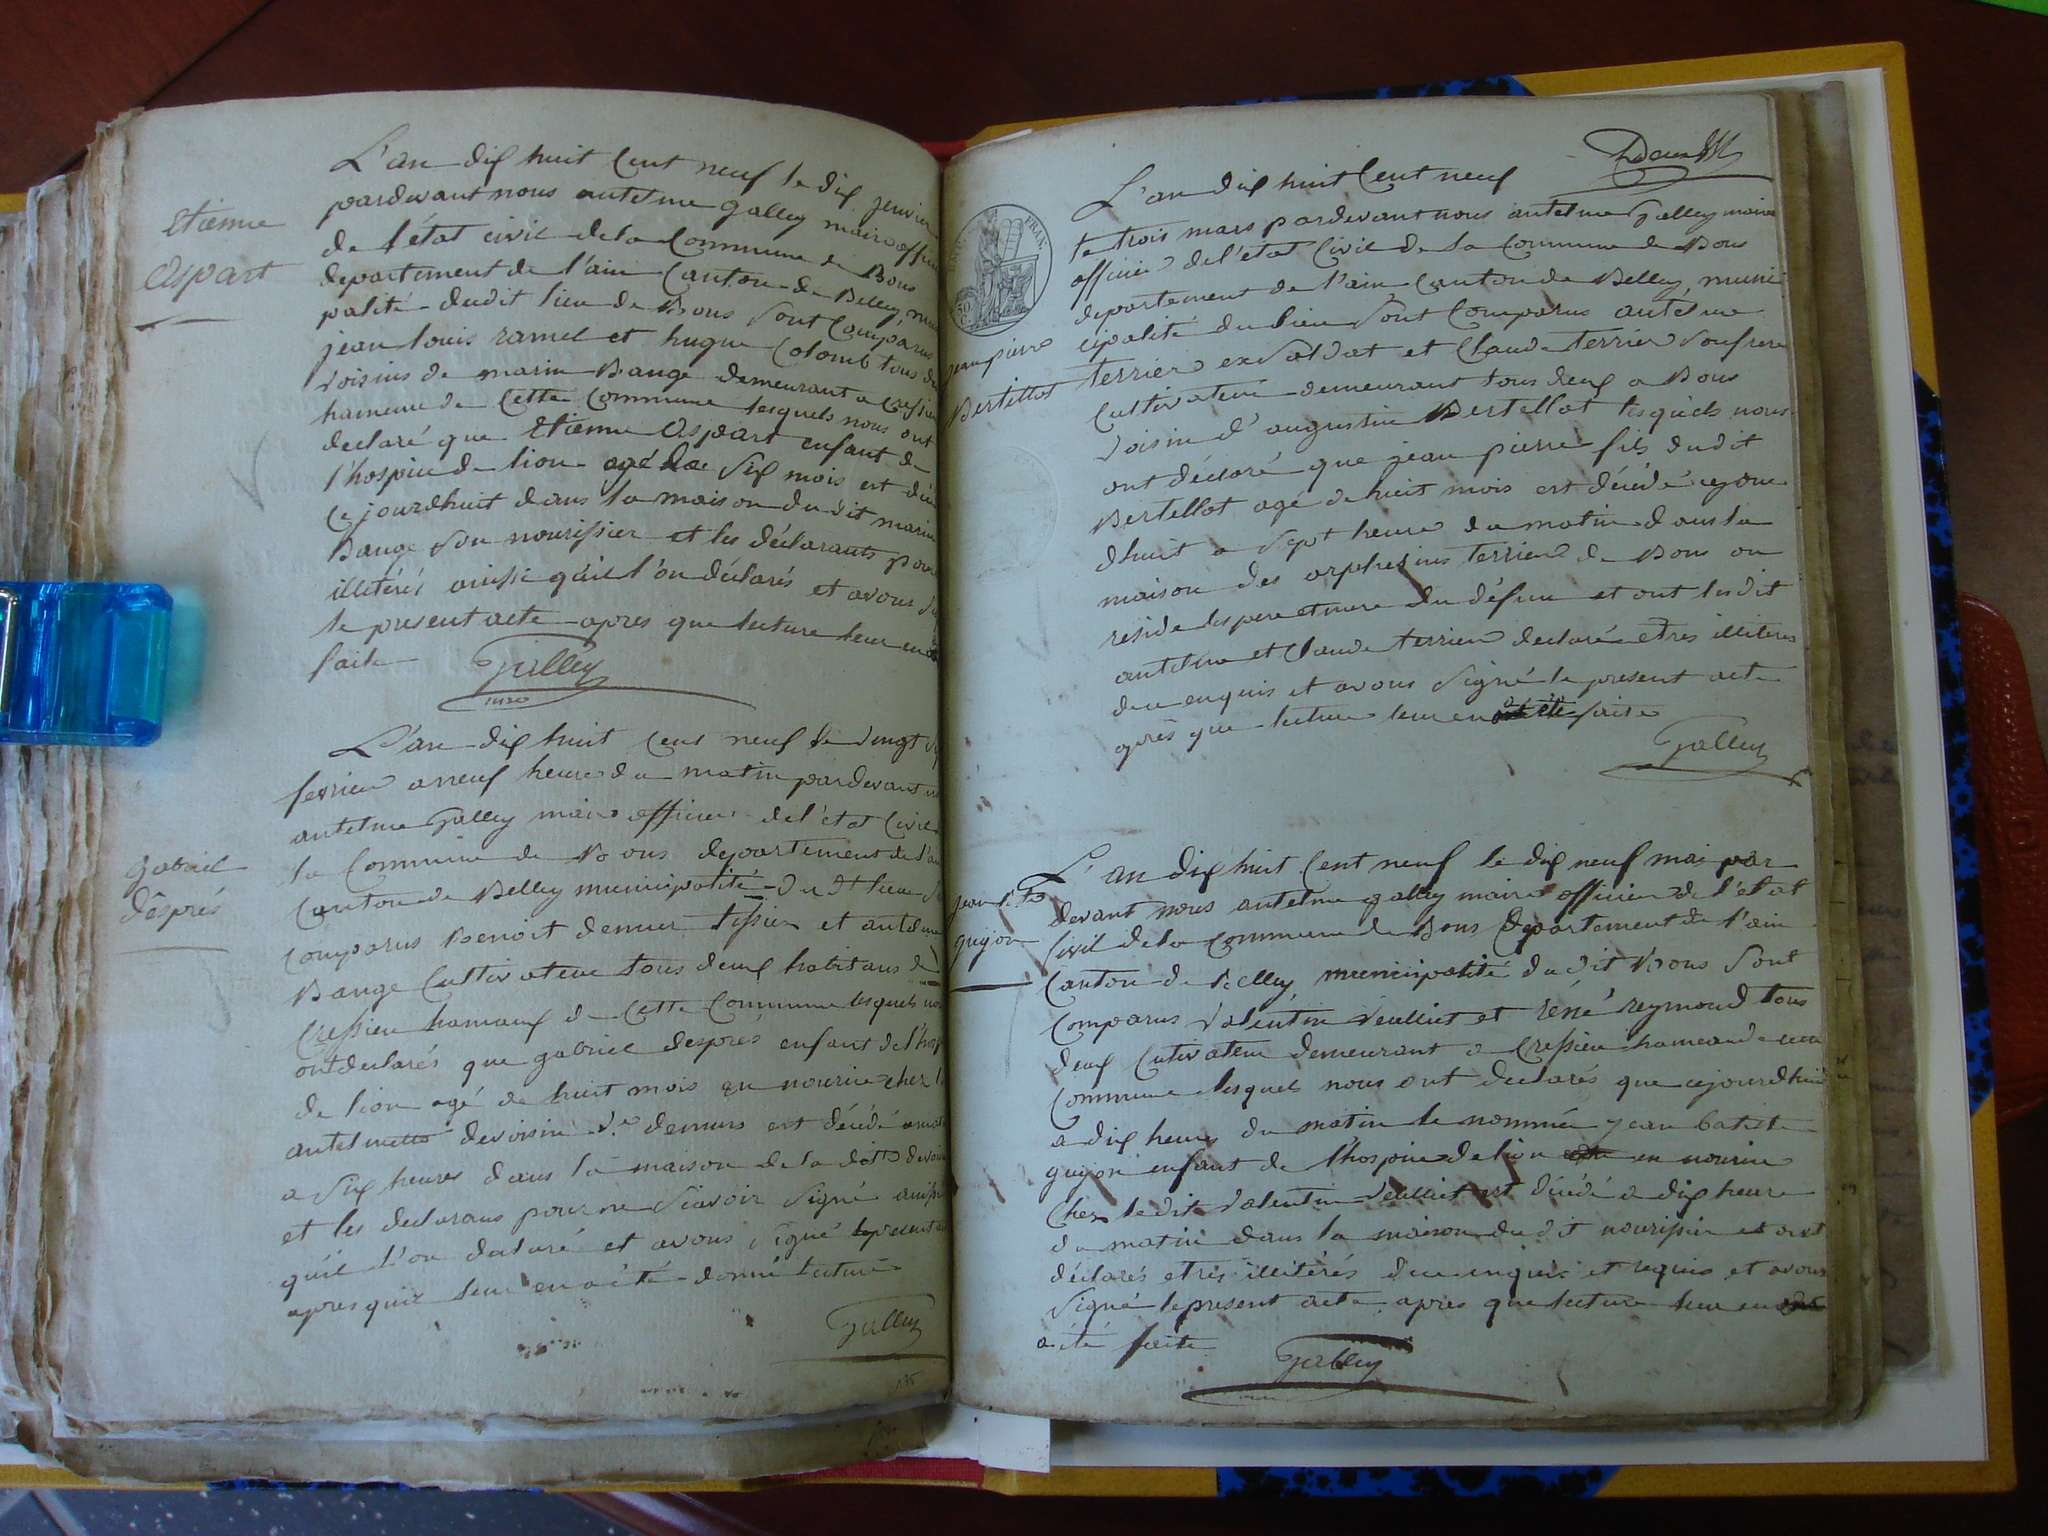 Etienne
Aspart
L'an dix huit Cent neuf le dix jenvier
pardevant nous antelme galley maire offici
de l'état civil de la Commune de Bons
departement de l'ain Canton de Belley, muni
palité dudit lieu de Bons sont Comparus
jean louis ramel et hugue Colomb tous deux
voisins de marin Bange demeurant a Cressieu
hameau de Cette Commune lesquels nous ont
declaré que Etienne Aspart enfant de
l'hospice de lion agé de six mois est décé
ce jourdhuit dans la maison du dit marin
Bange son nourissier et les déclarants pour
illitérés ainsi quil l'on déclarés et avons si
le present acte apres que lecture leur en a
faite
Galley
Gabriel
déprés
L'an dix huit Cent neuf le vingt
fevrier a neuf heures du matin pardevant
antelme Galley maire officier de l'état Civil
la Commune de Bons departement de l'ain
Canton de Belley municipalité du dt lieu
Comparus Benoit demeur tissier et antelme
Bange Cultivateur tous deux habitans de
Cressieu hamaux de Cette Commune lesquels
ont declarés que gabriel després enfant de l'hosp
de lion agé de huit mois en nourice chez
antelmette devoisin demurs est décédé
a six heures dans la maison de la ditte devoi
et les declarans pour ne sçavoir signé ainsi
quil l'on declaré et avons signé le present
apres quil leur en a été donné lecture
Galley
jean pierre
Bertillot
L'an dix huit Cent neuf
le trois mars pardevant nous antelme Galley maire
officier de l'état Civil de la Commune de Bons
departement de l'ain Canton de Belley, muni
cipalité du lieu sont Comparus antelme
terrier ex Soldat et Claude terrier son frere
Cultivateur demeurant tous deux a Bons
voisin d'augustin Bertellot lesquels nous
ont déclaré que jean pierre fils du dit
Bertellot agé de huit mois est décédé cejour
dhuit a sept heure du matin dans la
maison des orphelins terrier de Bons ou
reside les pere et mere du défun et ont lesdit
antelme et Claude terrier declaré etres illiteres
de ce enquis et avons signé le present acte
après que lecture leur en a été faite
Galley
jean Bte
guijon
L'an dix huit Cent neuf le dix neuf mai par
devant nous antelme galley maire officier de l'etat
Civil de la commune de Bons Departement de l'ain
Canton de Belley municipalité du dit Bons sont
Comparus valentin veulliet et réné reymond tous
deux Cutivateur demeurant a Cressieu hameau de cette
Commune lesquels nous ont declarés que cejourdhui
a dix heures du matin le nommée jean batiste
guijon enfant de l'hospice de lion en nourice
Chez le dit valentin veulliet est décédé a dix heure
du matin dans la maison du dit nourissier et ont
déclarés etres illitérés de ce enquis et requis et avons
signé le present acte apres que lecture leur en
a été faite
Galley